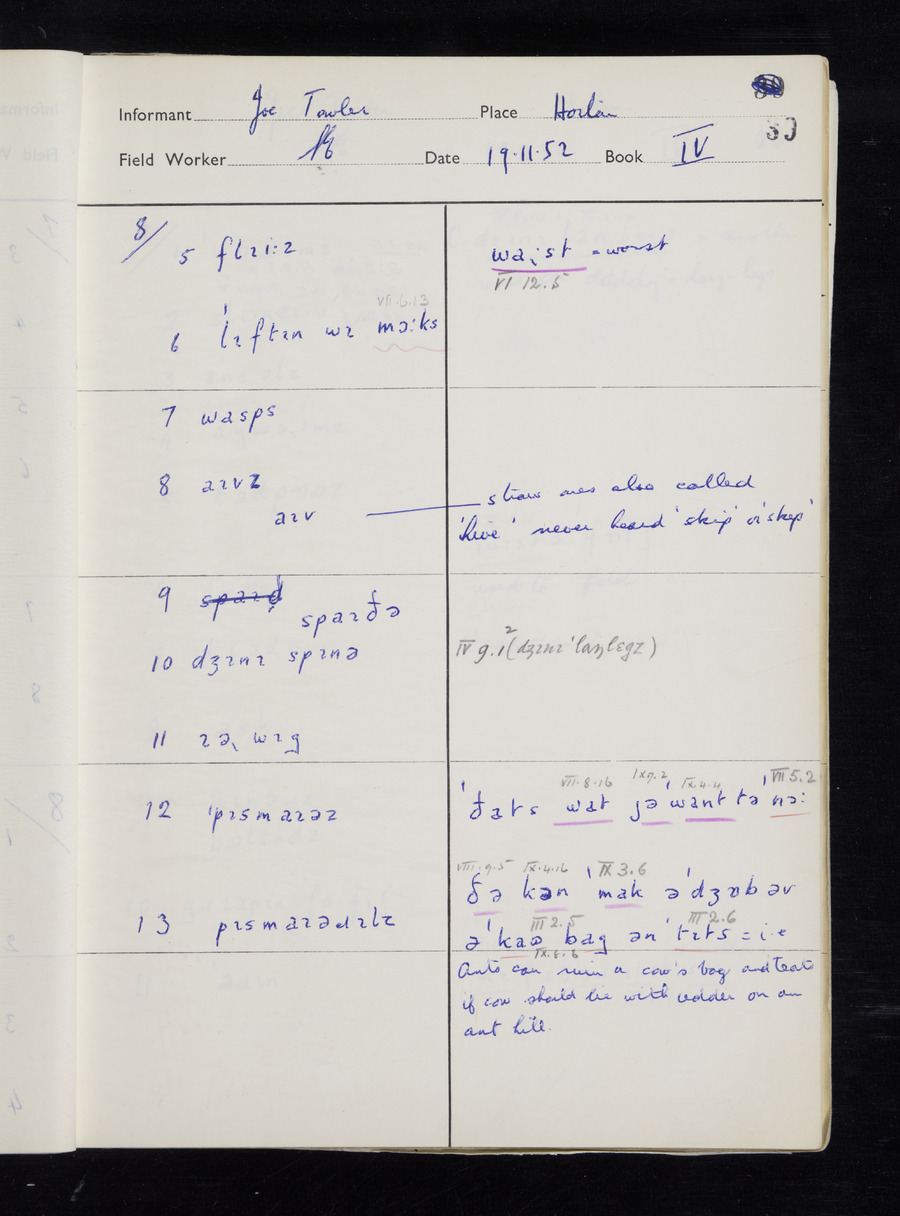 Informant Joe Towler Place
Field Worker Date 19·11·52 Book IV
8/
5 flɪi:z
waɪst = worst
VI 12.5
VII.6.13
6 ˈlɪftɪn wɪ mɔ:ks
7 wasps
8 aɪvz
aɪv
straw ones also called
'hive' never heard 'skip' or 'skep'
9 spaɪðə
10 dʒɪnɪ spɪnə
IV 9.1²(dʒɪnɪˈlaŋlɛgz)
11 ɪəˌwɪg
VII.8.16 IX.9.2 IX.4.4 VII 5.2
12 ˈpɪsmaɪəz
ˈðats wat jəˈwant təˈnɔ:
VIII.9.5 IX.4.16 IX 3.6
ðə kən ˈmak əˈdʒɒb əv
III 2.5 III 2.6
13 pɪsmaɪədɪlz
əˈkaʊ bag ənˈtɪts = i.e
IX.8.6
Ants can ruin a cow's bag and teats
if cow should lie with udder on an
ant hill.